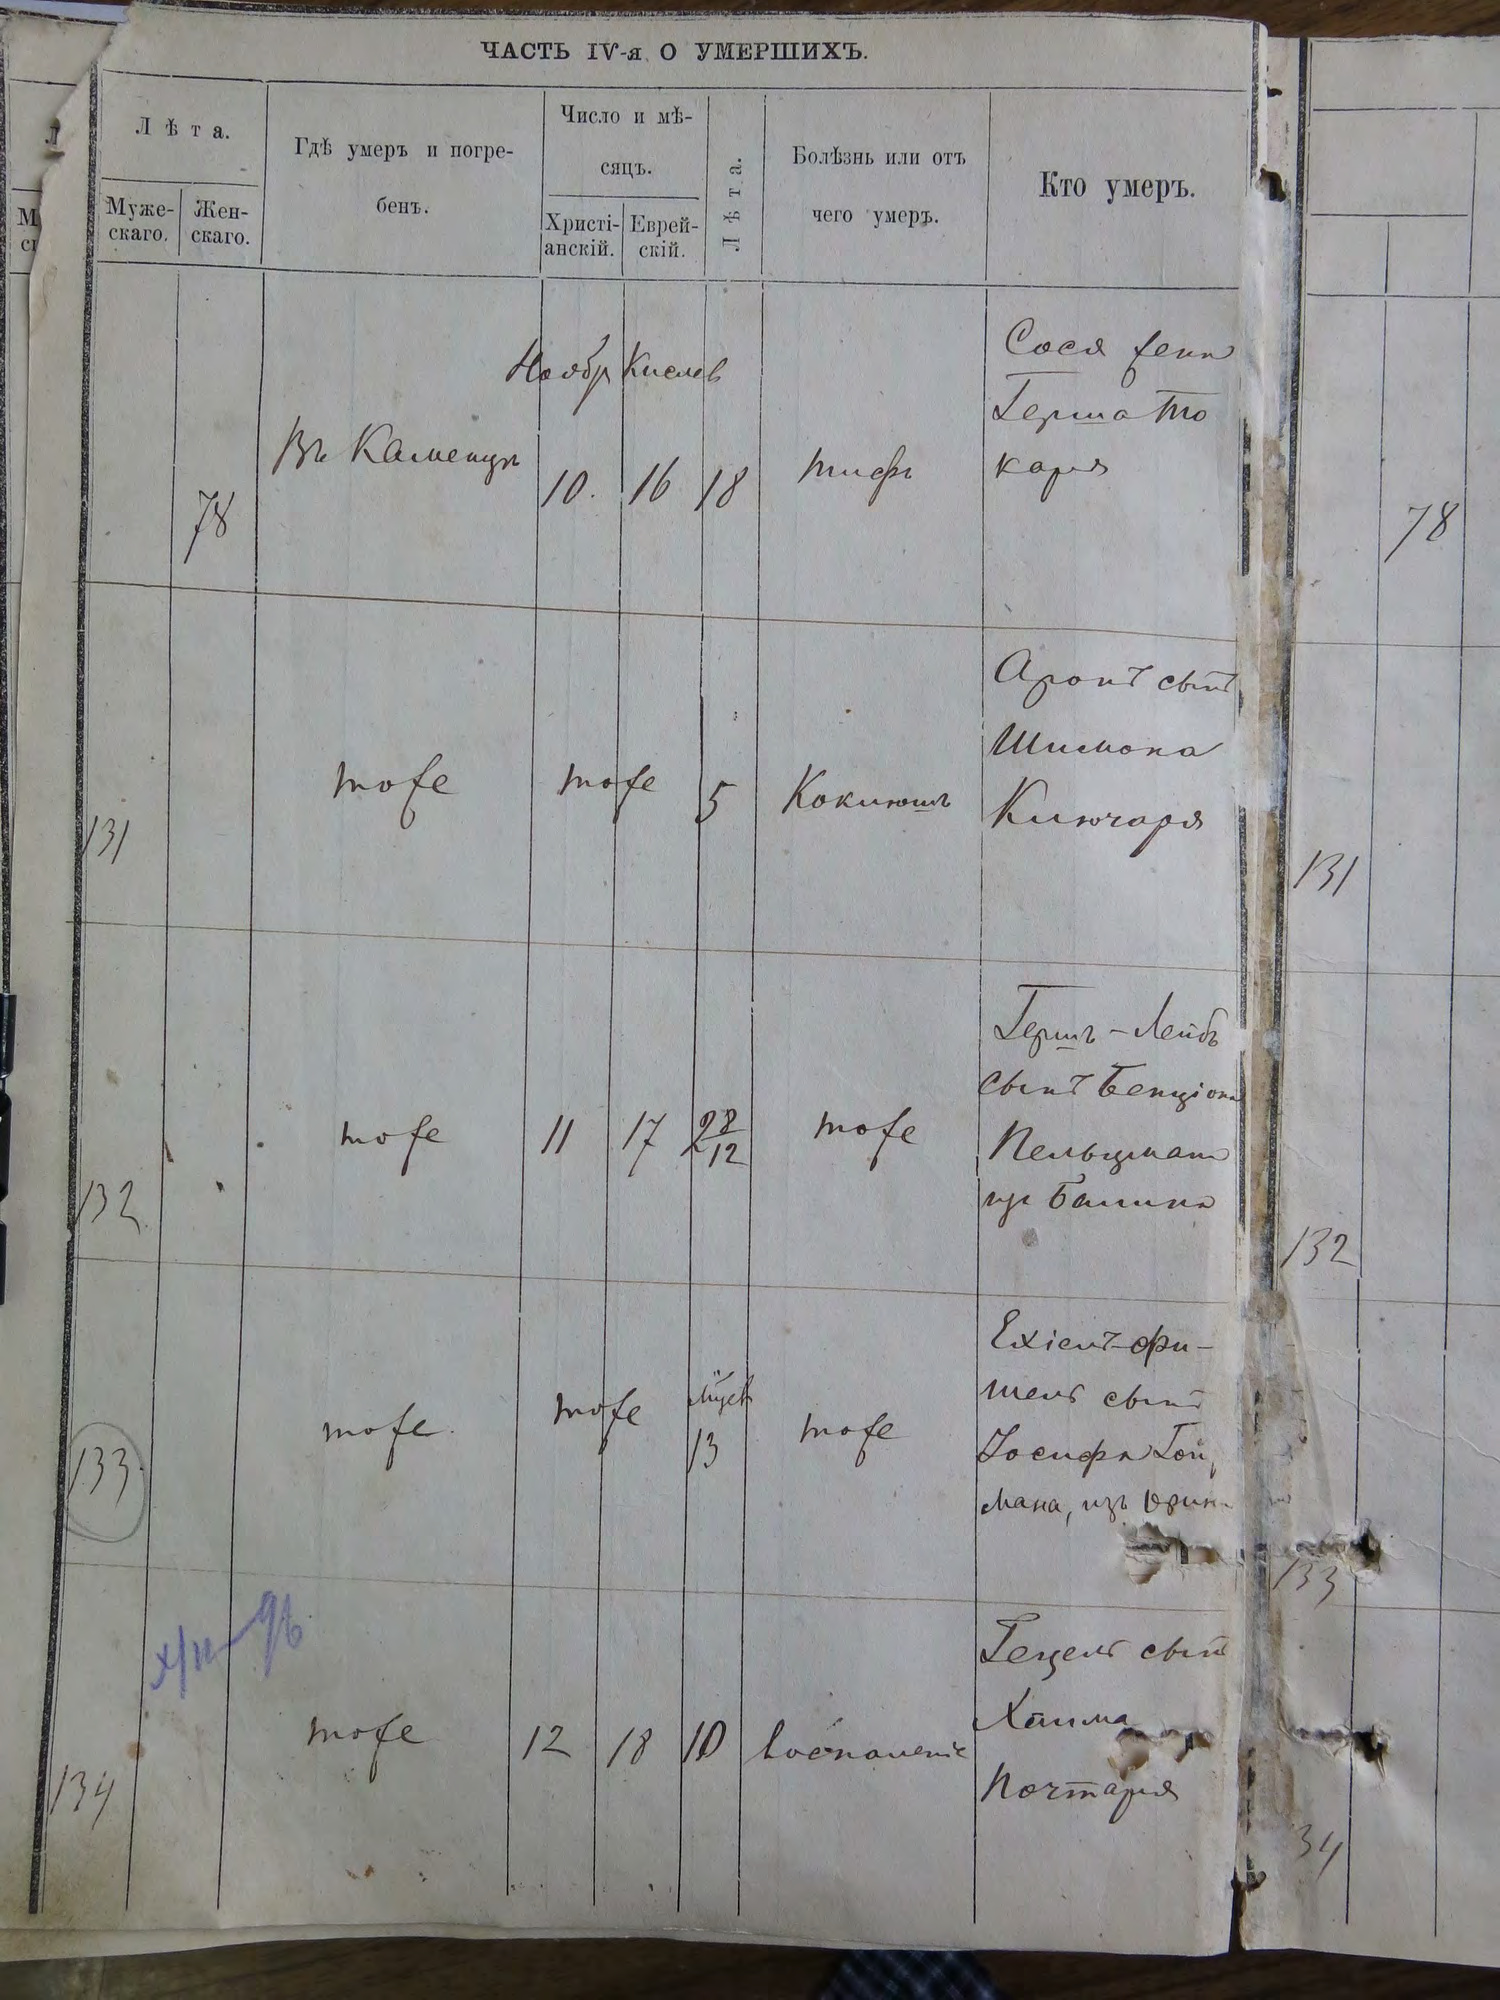 ЧАСТЬ IV-я О УМЕРШИХЪ.
Лѣта.
Муже-
скаго.
Жен-
скаго.
Гдѣ умеръ и погре-
бенъ.
Число и мѣ-
сяцъ.
Христі-
анскій.
Еврей-
скій.
Лѣта.
Болѣзнь или отъ
чего умеръ.
Кто умеръ.
78
Въ Каменцѣ
Ноябр Кислев
10. 16 18
тифъ
Сося жена
Герша То
каря
78
131
тоже
тоже
5
Коклюшъ
Аронъ сынъ
Шимона
Ключаря
131
132
тоже
11 17 2 8/12
тоже
Гершъ-Лейбъ
сынъ Бенціона
Пельцмана
изъ Балина
132
133
тоже
тоже
Мѣсяц
13
тоже
Ехіель-Фи-
шель сынъ
Іосифа Гой
мана, изъ
133
134
тоже
12 18 10
Воспаленіе
Гецель сынъ
Хаима
Почтаря
34